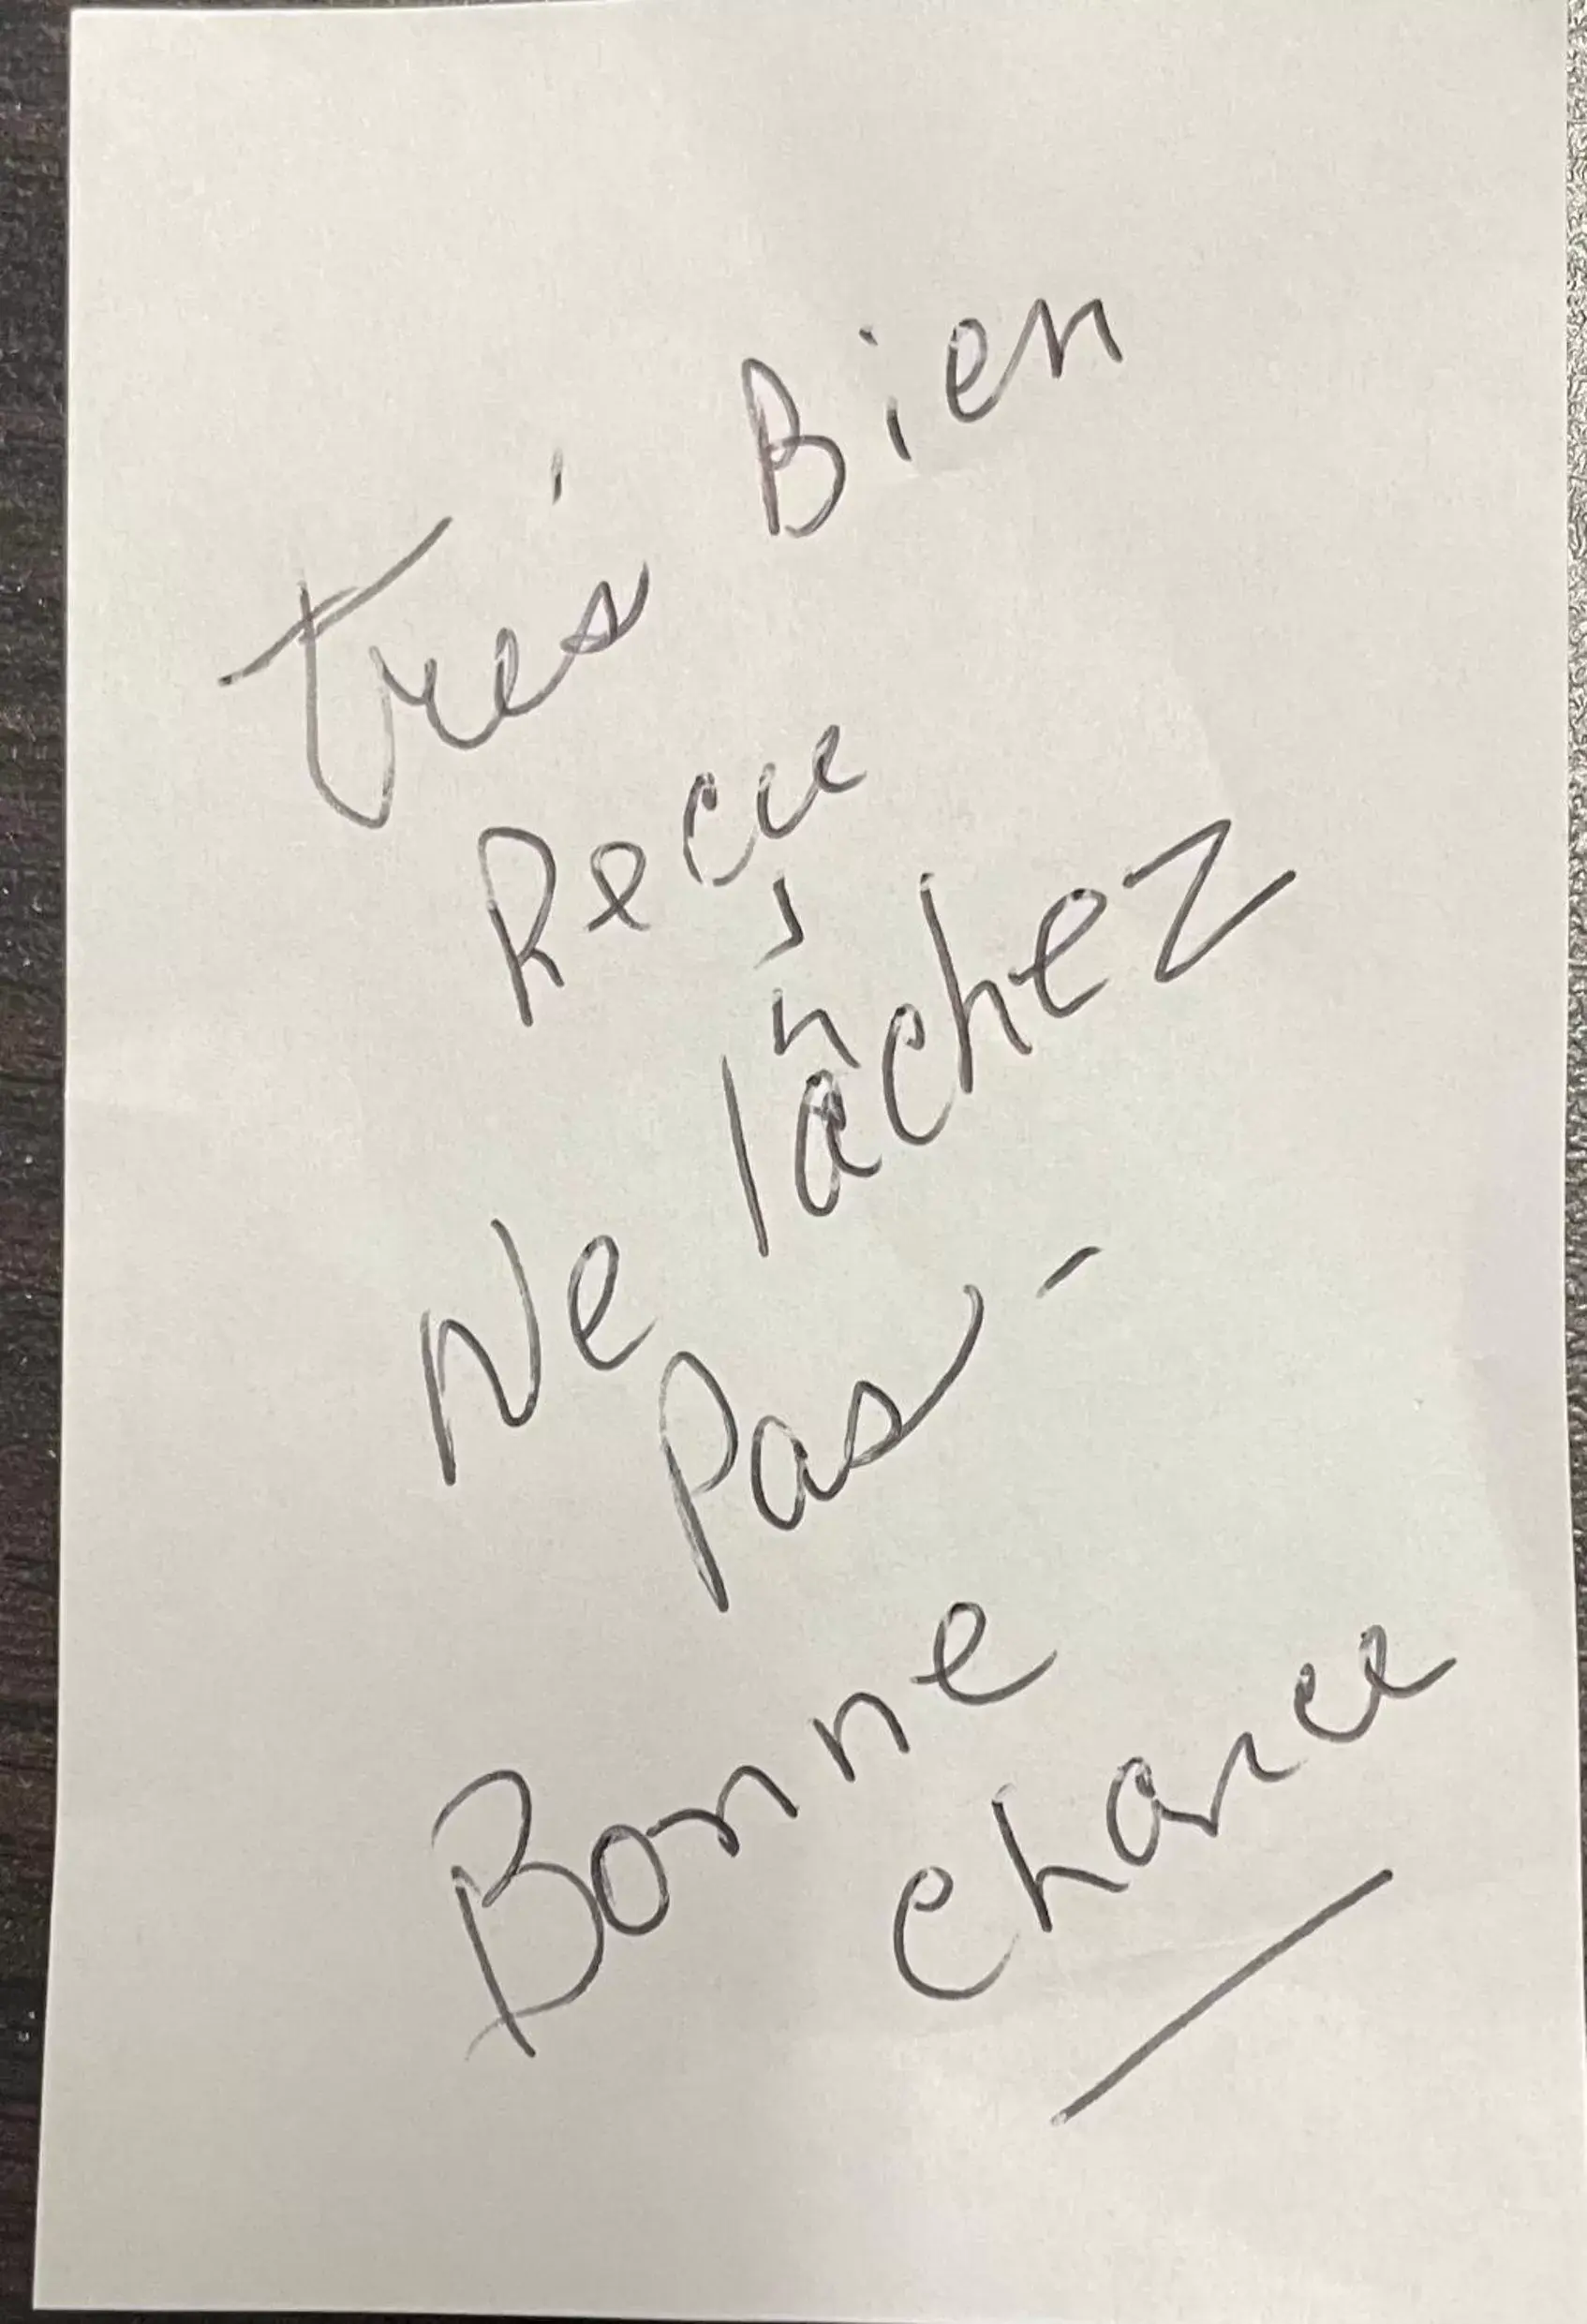 très Bien
Reçu
Ne lâchez
Pas -
Bonne
chance